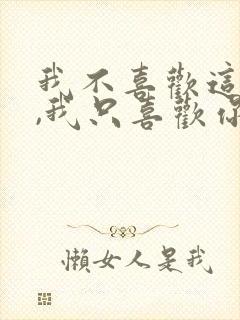 我不喜歡這
,我只喜歡你
懶女人是我